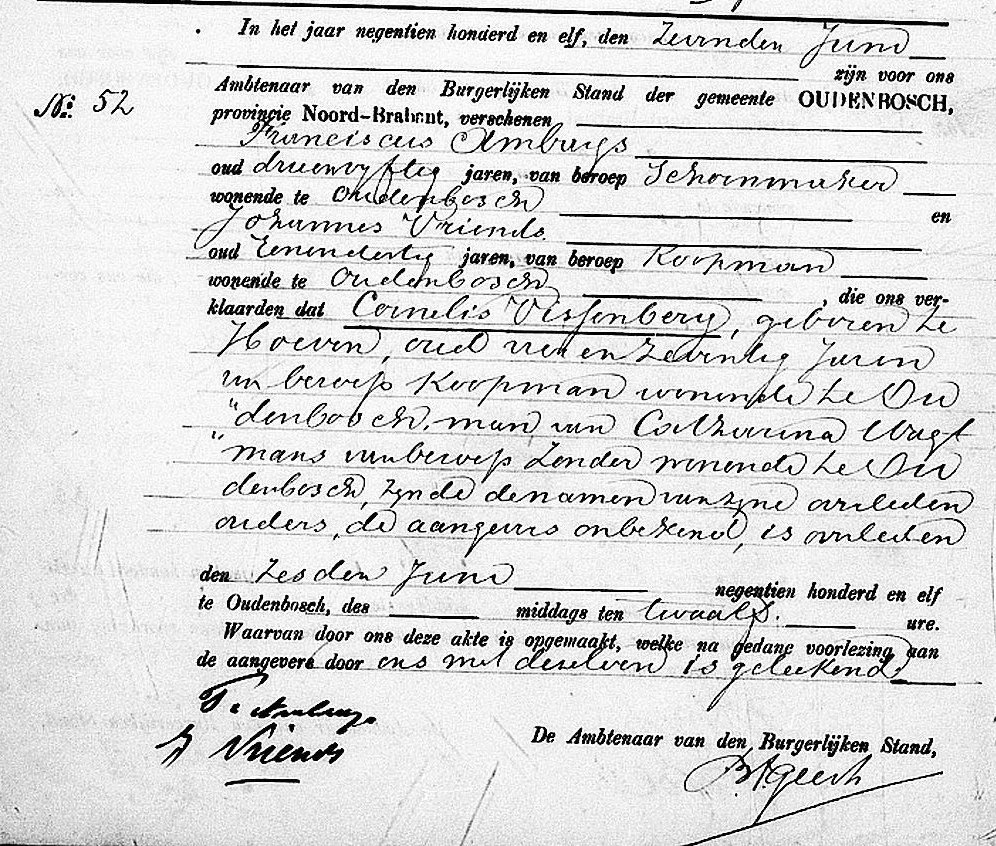 In het jaar negentien honderd en elf, den Zevenden Juni
zijn voor ons
Nº 52
Ambtenaar van den Burgerlijken Stand der gemeente OUDENBOSCH,
provincie Noord-Brabant, verschenen
Franciscus Ambags
oud drieenvyftig jaren, van beroep Schoenmaker
wonende te Oudenbosch en
Johannes Vriends
oud Eenendertig jaren, van beroep Koopman
wonende te Oudenbosch, die ons ver-
klaarden dat Cornelis Vissenberg, geboren te
Hoeven, oud vier en zeventig Jaren
van beroep Koopman wonende te Ou
"denbosch, man van Catharina Wagt
"mans van beroep Zonder wonende te Ou
denbosch, zynde de namen van zyne overleden
ouders, de aangevers onbekend, is overleden
den Zesden Juni negentien honderd en elf
te Oudenbosch, des middags ten twaalf ure.
Waarvan door ons deze akte is opgemaakt, welke na gedane voorlezing aan
de aangevers door ons met dezelven is geteekend.
F. Ambags
J Vriends
De Ambtenaar van den Burgerlijken Stand,